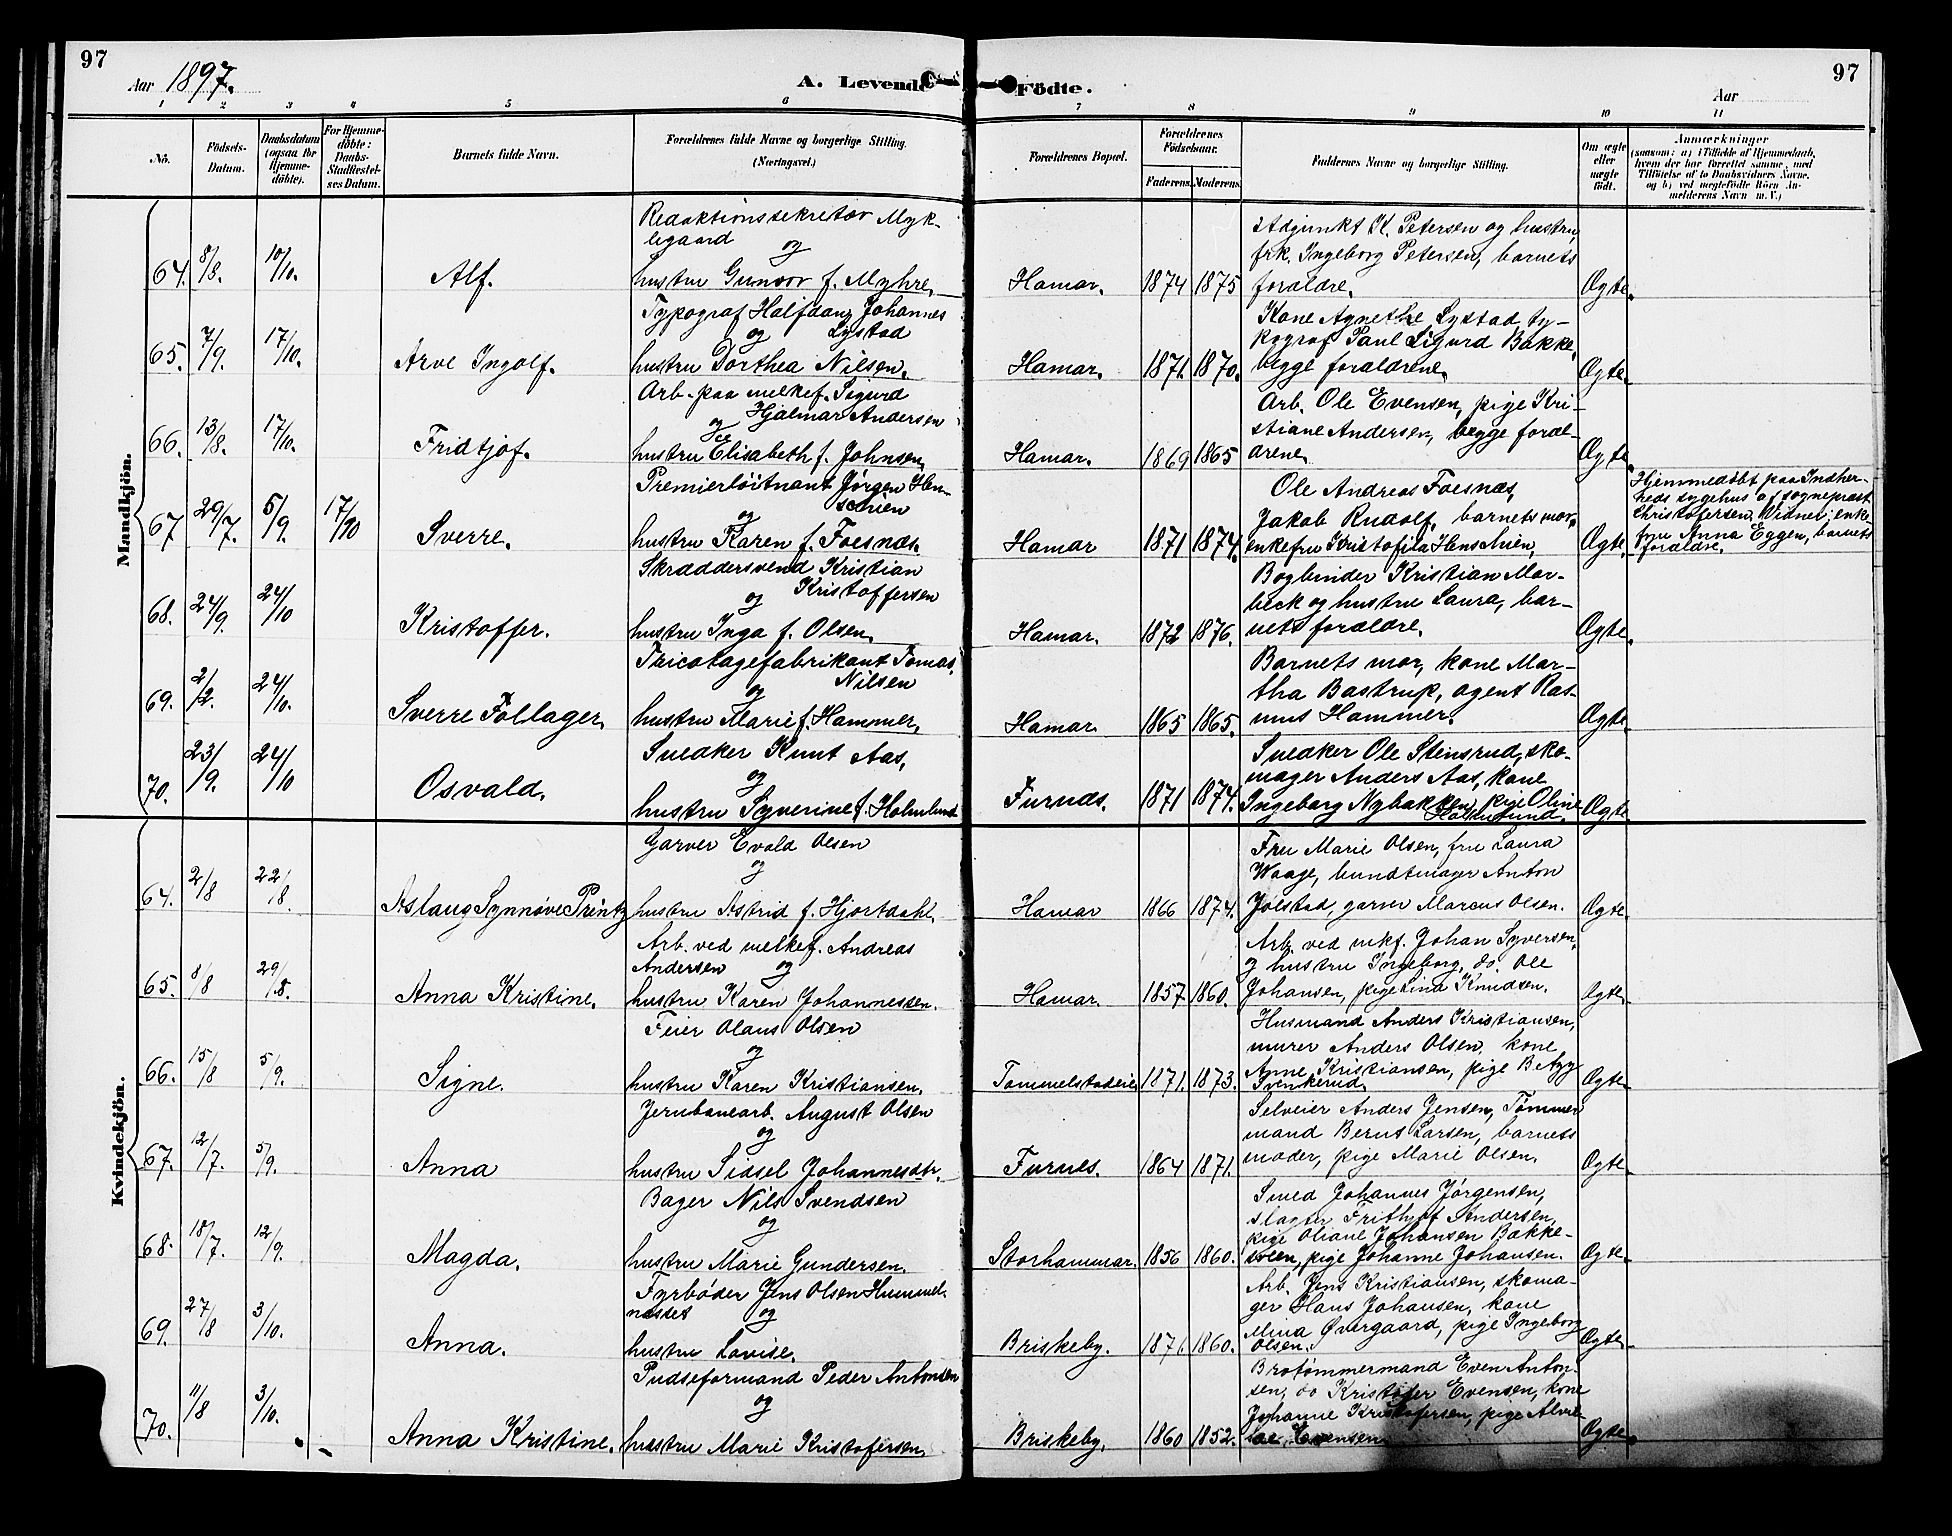 97
Aar 1897.
A. Levende
Födte.
97
Aar
1 2 3 4 5 6 7 8 9 10 11
No.
Födsels-Datum.
Daabsdatum (ogsaa for Hjemme-döbte).
For Hjemme-döbte: Daabs-Stadfæstel-ses Datum.
Barnets fulde Navn.
Forældrenes fulde Navne og borgerlige Stilling. (Næringsvei.)
Forældrenes Bopæl.
Forældrenes Födselsaar.
Faderens. Moderens.
Faddernes Navne og borgerlige Stilling.
Om ægte eller uægte födt.
Anmærkninger
(saasom: a) i Tilfælde af Hjemmedaab, hvem der har forrettet samme, med Tilföielse af to Daabsvidners Navne, og b) ved uægtefödte Börn Anmelderens Navn m. V.)
Mandkjön.
64. 8/8. 10/10. Alf.
Redaktionssekretær Myk-
legaard
og
hustru Gunvor f. Myhre.
Hamar. 1874 1875
Adjunkt K. Petersen og hustru,
frk. Ingeborg Petersen, barnets
forældre.
Ægte.
65. 7/9. 17/10. Arve Ingolf.
Typograf Halfdan Johannes
og Lystad
hustru Dorthea Nilsen.
Hamar. 1871. 1870.
Kone Agnethe Lystad ty-
pograf Paul Sigurd Bakke,
begge forældrene.
Ægte.
66. 13/8. 17/10. Fridtjof.
Arb. paa melkef. Sigurd
Hjalmar Andersen
og
hustru Elisabeth f. Johnsen.
Hamar. 1869 1865
Arb. Ole Evensen, pige Kri-
stiane Andersen, begge foræl-
drene.
Ægte.
67 29/7. 5/9. 17/10 Sverre.
Premierløitnant Jørgen Hen-
schien
og
hustru Karen f. Foesnæs.
Hamar 1871 1874.
Ole Andreas Foesnæs,
Jakob Rudolf, barnets mor,
enkefru Kristofila Henschien,
Ægte.
Hjemmedøbt paa Indher-
reds sygehus af sogneprest
Christofersen. Vidnel: enke-
fru Anna Eggen, barnets
forældre.
68. 24/9. 24/10 Kristoffer.
Skræddersvend Kristian
Kristoffersen
og
hustru Inga f. Olsen.
Hamar. 1872 1876.
Bogbinder Kristian Mor-
beck og hustru Laura, bar-
nets forældre.
Ægte.
69. 2/2. 24/10. Sverre Follager.
Tricotagefabrikant Tomas
Nilsen
og
hustru Marie f. Hammer.
Hamar 1865 1865.
Barnets mor, kone Mar-
tha Bastrup, agent Ras-
mus Hammer.
Ægte.
70. 23/9. 24/10 Osvald.
Snedker Knut Aas,
og
hustru Syverine f. Holmlund
Furnæs. 1871 1874.
Snedker Ole Stensrud, sko-
mager Anders Aas, kone
Ingeborg Nybakken, pige Oline
Holmlund.
Ægte
Kvindekjön.
64. 2/8 22/8. Aslaug Synnøve Printz
Garver Evald Olsen
og
hustru Astrid f. Hjortdahl.
Hamar 1866 1874.
Fru Marie Olsen, fru Laura
Waage, bundtmager Anton
Jølstad, garver Marcus Olsen.
Ægte.
65. 8/8 29/8. Anna Kristine.
Arb. ved melkef. Andreas
Andersen og
hustru Karen Johannessen.
Hamar. 1857 1860.
Arb. ved mkf. Johan Syversen,
og hustru Ingeborg, do. Ole
Johansen, pige Lina Knudsen.
Ægte.
66. 15/8 5/9. Signe.
Feier Olaus Olsen
og
hustru Karen Kristiansen.
Tommelstadeie 1871. 1873.
Husmand Anders Kristiansen,
murer Anders Olsen, kone
Anne Kristiansen, pige Betzy
Svenkerud.
Ægte.
67. 12/7. 5/9. Anna
Jernbanearb. August Olsen
og
hustru Sidsel Johannesdtr.
Furnes. 1864 1871.
Selveier Anders Jensen, Tømmer
mand Bernt Larsen, barnets
moder, pige Marie Olsen.
Ægte.
68. 18/7. 12/9. Magda.
Bager Nils Svendsen
og
hustru Marie Gundersen.
Storhammar. 1856 1860.
Smed Johannes Jørgensen,
slagter Frithjof Andersen,
pige Oliane Johansen Bakke-
sveen, pige Johanne Johansen.
Ægte.
69. 27/8 3/10. Anna.
Fyrbøder Jens Olsen Hummel-
næsset og
hustru Lovise.
Briskeby. 1871 1860.
Arb. Jens Kristiansen, skoma-
ger Hans Johansen, kone
Mina Øvergaard, pige Ingeborg
Olsen.
Ægte.
70. 11/8 3/10. Anna Kristine.
Pudseformand Peder Antonsen
og
hustru Marie Kristofersen.
Briskeby. 1860 1852.
Brotømmermand Even Anton-
sen, do Kristofer Evensen, kone
Johanne Kristofersen, pige
Evensen.
Ægte.